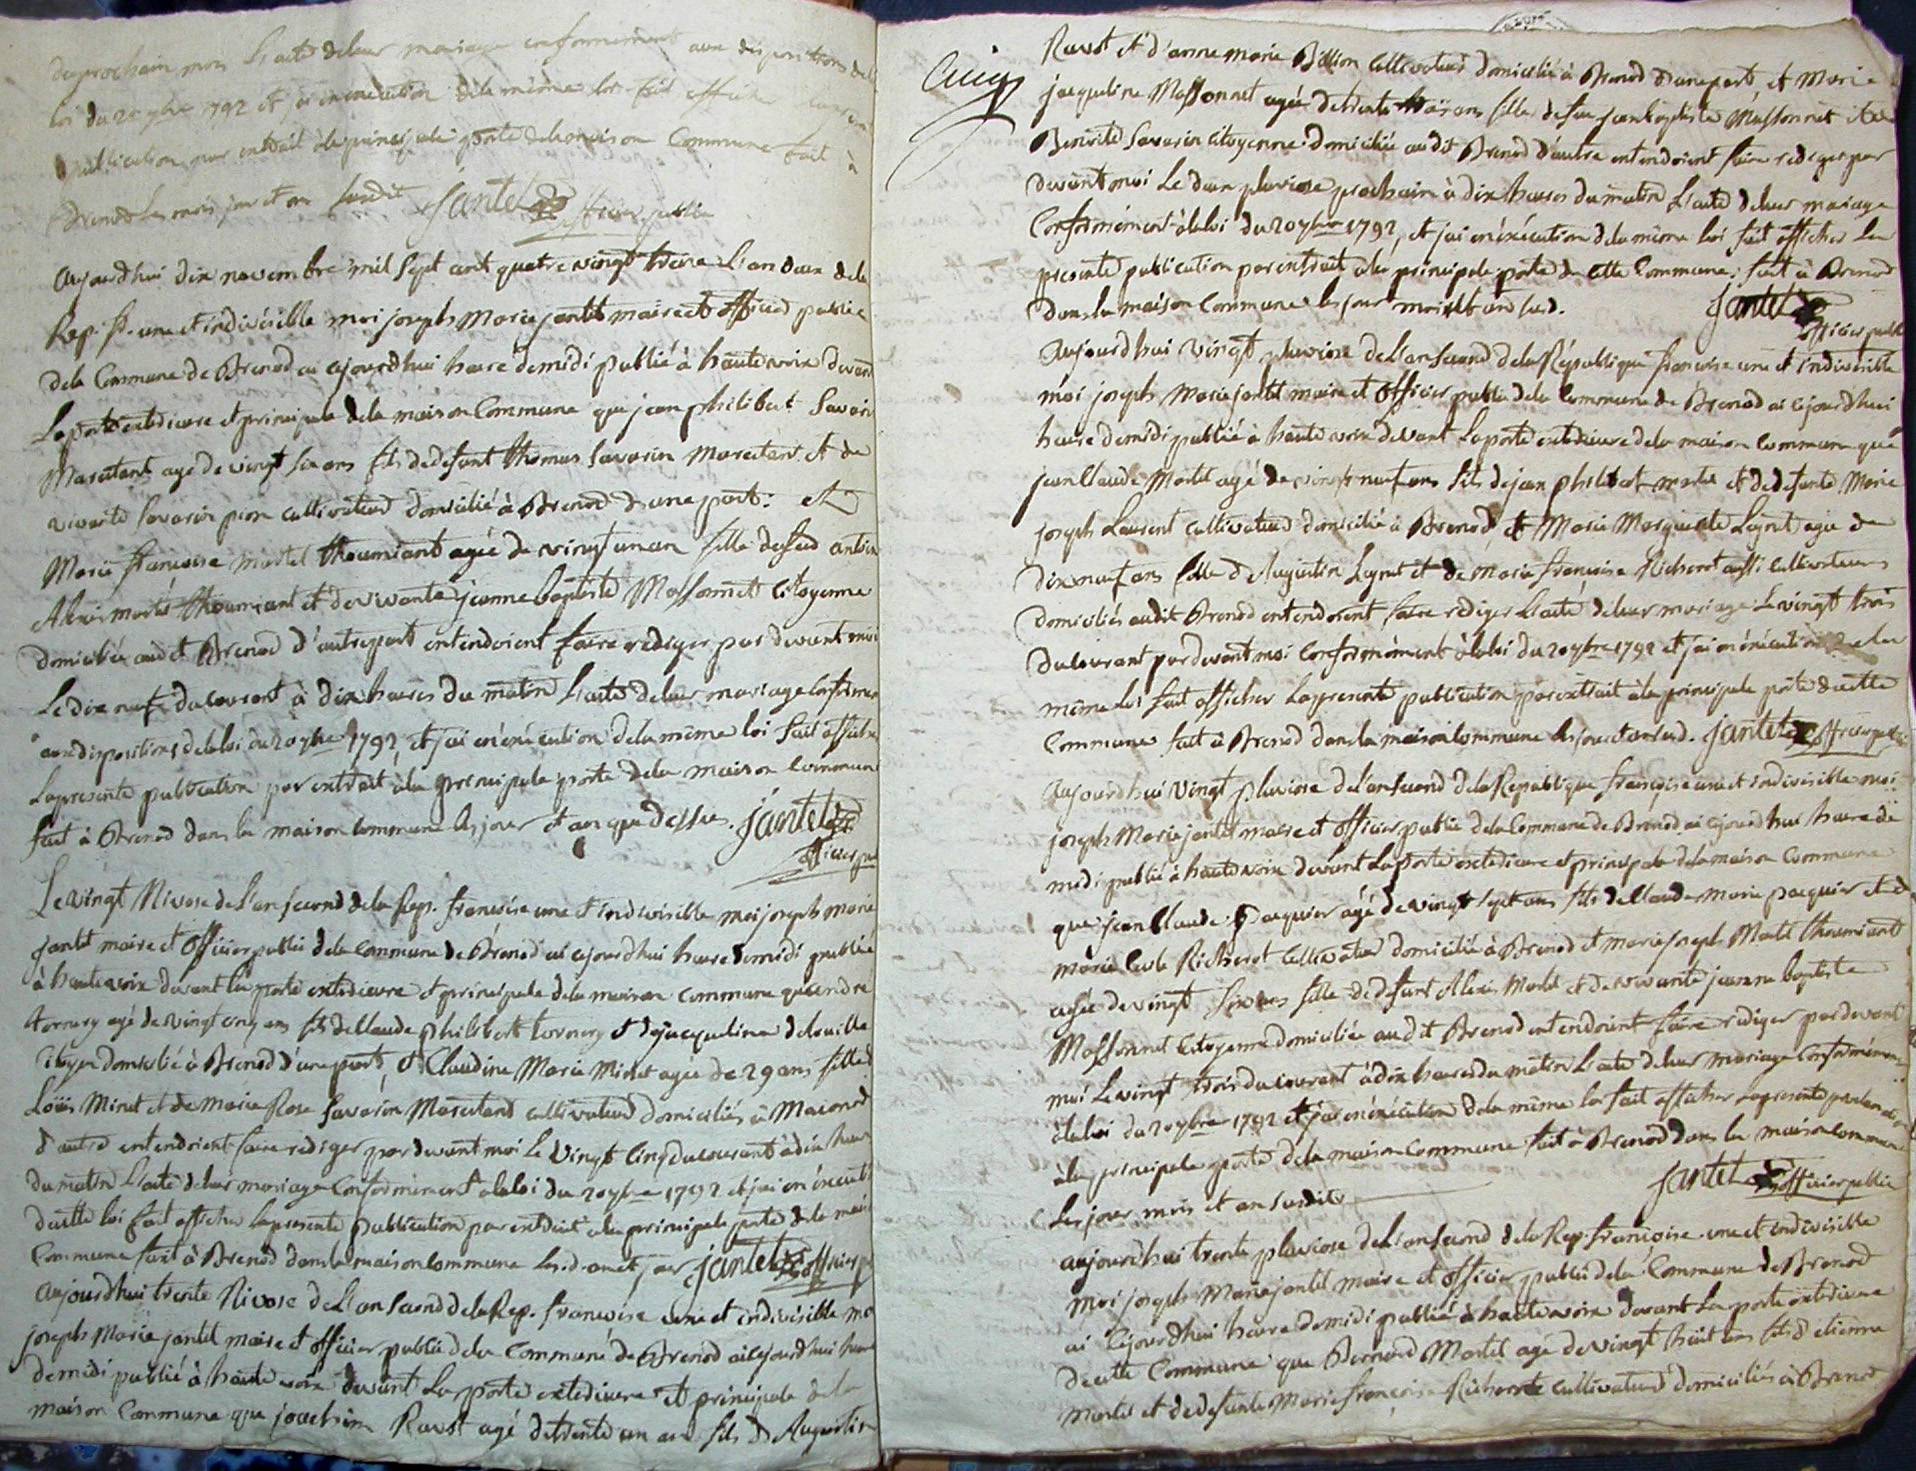 du prochain mois L'acte de leur mariage conformément aux dispositions de la
loi du 20 7bre 1792 et j'ai en execution de la même loi fait afficher
publication par extrait à la principale porte de la maison Commune fait à
Brenod les mois jour et an susdit Jantet officier public
aujourdhui dix novembre mil sept cent quatre vingt treize L'an deux de la
Rep. fr. une et indivisible moi joseph Marie jantet maire et officier public
de la Commune de Brenod ai cejourdhui heure de midi publié à haute voix devant
La porte exterieure et principale de la maison Commune que jean philibert Savarin
Marcitant agé de vingt six ans fils de defunt thomas Savarin Marcitant et de
vivante Savarin pion cultivateur domicilié à Brenod d'une part: et
Marie françoise martel thoumiant agée de vingt un an fille de feu antoine
Alexis martel thoumiant et de vivante jeanne baptiste Massonnet citoyenne
domiciliée audit Brenod d'autre part entendoient faire rediger par devant moi
Le dix neuf du courant à dix heures du matin L'acte de leur mariage conformem
aux dispositions de la loi du 20 7bre 1792, et j'ai en execution de la même loi fait afficher
La presente publication par extrait à la principale porte de la maison Commune
fait à Brenod dans la maison Commune les jour et an que dessus. Jantet
officier pu
Le vingt Nivose de L'an second de la Rep. françoise une et indivisible moi joseph marie
jantet maire et officier public de la Commune de Brenod ai cejourdhui heure de midi publié
à haute voix devant la porte exterieure et principale de la maison Commune que andré
tornery agé de vingt cinq ans fils de Claude philibert tornery et de jacqueline delouille
Citoyen domicilié à Brenod d'une part, et Claudine Marie Miret agée de 29 ans fille de
Loüis Miret et de marie Rose Savarin Marcitant cultivateur domiciliés à Maconod
d'autre entendoient faire rediger par devant moi le vingt cinq du courant à dix heures
du matin L'acte de leur mariage Conformement à la loi du 20 7bre 1792 et j'ai en executi
de cette loi fait afficher la presente publication par extrait à la principale porte de la mais
Commune fait à Brenod dans la maison Commune les d. an et jour Jantet officier p
aujourdhui trente Nivose de L'an second de la Rep. françoise une et indivisible moi
joseph Marie jantet maire et officier public de la Commune de Brenod ai cejourdhui heure
de midi publié à haute voix devant La porte exterieure et principale de la
maison Commune que joachim Ravot agé de trente un an fils d'Augustin
Cinq
Ravot et d'anne marie Billion cultivateurs domicilié à Brenod d'une part, et Marie
jacqueline Massonnet agée de trente trois ans fille de feu jean baptiste Massonnet et de
Benoite Savarin citoyenne domiciliée audit Brenod d'autre entendoient faire rediger par
devant moi Le deux pluviose prochain à dix heures du matin L'acte de leur mariage
Conformément à la loi du 20 7bre 1792, et j'ai en execution de la même loi fait afficher la
presente publication par extrait à la principale porte de cette Commune; fait à Brenod
dans la maison Commune les jour mois et an susd. Jantet
officier public
aujourdhui vingt pluviose de L'an second de la République françoise une et indivisible
moi joseph Marie jantet maire et officier public de la Commune de Brenod ai cejourdhui
heure de midi publié à haute voix devant La porte exterieure de la maison Commune que
jean Claude Martel agé de vingt neuf ans fils de jean philibert martel et de defunte Marie
joseph Laurent cultivateur domicilié à Brenod et Marie Marguerite Legrut agée de
dix neuf ans fille d'Augustin Legrut et de Marie françoise Richerot aussi cultivateurs
domiciliés audit Brenod entendoient faire rediger L'acte de leur mariage Le vingt trois
du courant par devant moi Conformément à la loi du 20 7bre 1792 et j'ai en execution de la
même loi fait afficher La presente publication par extrait à la principale porte de cette
Commune fait à Brenod dans la maison Commune les jour et an susd. Jantet officier public
aujourdhui vingt pluviose de L'an second de la Republique françoise une et indivisible moi
joseph Marie jantet maire et officier public de la Commune de Brenod ai cejourdhui heure de
midi publié à haute voix devant La porte exterieure et principale de la maison Commune
que jean Claude Pacquier agé de vingt sept ans fils de Claude marie pacquier et de
marie Richerot cultivateur domicilié à Brenod et marie joseph Martel thoumiant
agée de vingt six ans fille de defunt Alexis Martel et de vivante jeanne baptiste
Massonnet citoyenne domiciliée audit Brenod entendoient faire rediger par devant
moi Le vingt trois du courant à dix heures du matin L'acte de leur mariage conformément
à la loi du 20 7bre 1792 et j'ai en execution de la même loi fait afficher La presente par extrait
à la principale porte de la maison Commune fait à Brenod dans la maison Commune
Les jour mois et an susdits Jantet officier public
aujourdhui trente pluviose de L'an second de la Rep. françoise une et indivisible
Moi joseph Marie jantet maire et officier public de la Commune de Brenod
ai cejourdhui heure de midi publié à haute voix devant La porte exterieure
de cette Commune que Bernard Martel agé de vingt huit ans fils d'etienne
Martel et de defunte Marie françoise Richerot cultivateur domiciliés à Brenod